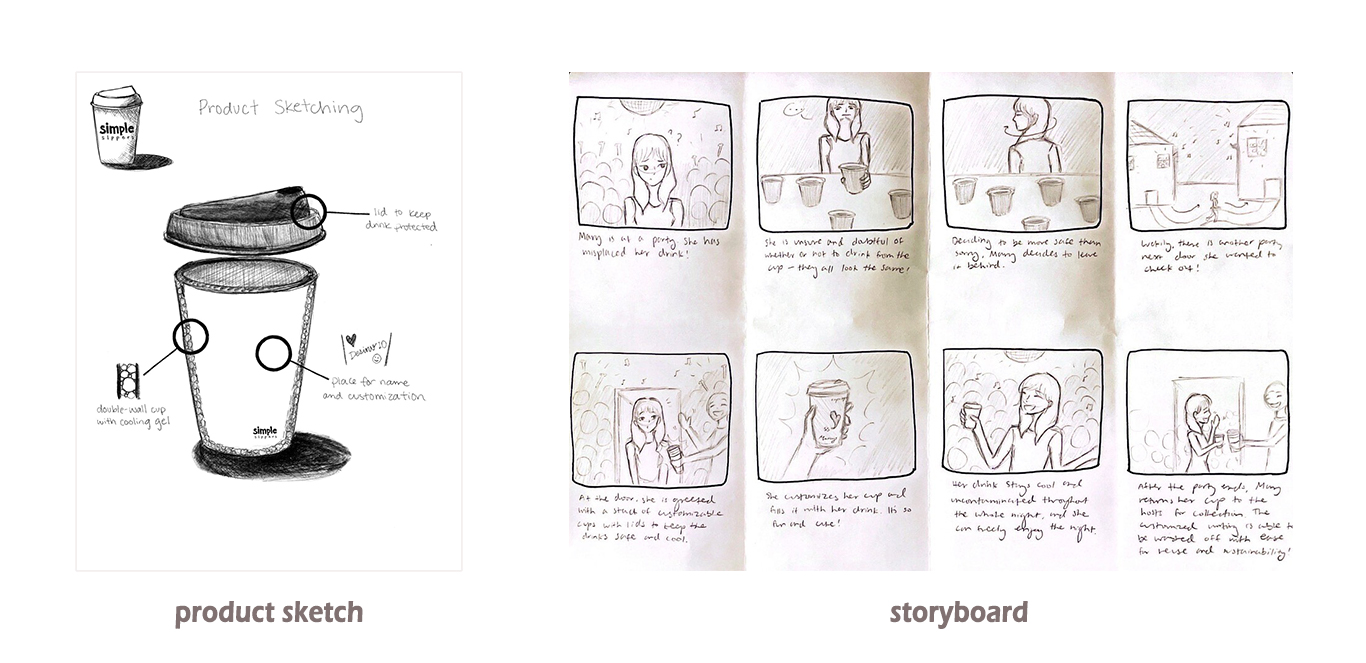 simple
sippers
Product Sketching
lid to keep
drink protected
Desiree 10
place for name
and customization
double-wall cup
with cooling gel
simple
sippers
product sketch
? ?
Mary is at a party. She has
misplaced her drink!
She is unsure and doubtful of
whether or not to drink from the
cup - they all look the same!
Deciding to be more safe than
sorry, Mary decides to leave
it behind.
Luckily, there is another party
next door she wanted to
check out!
At the door, she is greeted
with a stack of customizable
cups with lids to keep the
drinks safe and cool.
Mary
She customizes her cup and
fills it with her drink. It's so
fun and cute!
Her drink stays cool and
uncontaminated throughout
the whole night, and she
can freely enjoy the night.
After the party ends, Mary
returns her cup to the
hosts for collection. The
customized writing is able to
be washed off with ease
for reuse and sustainability!
storyboard